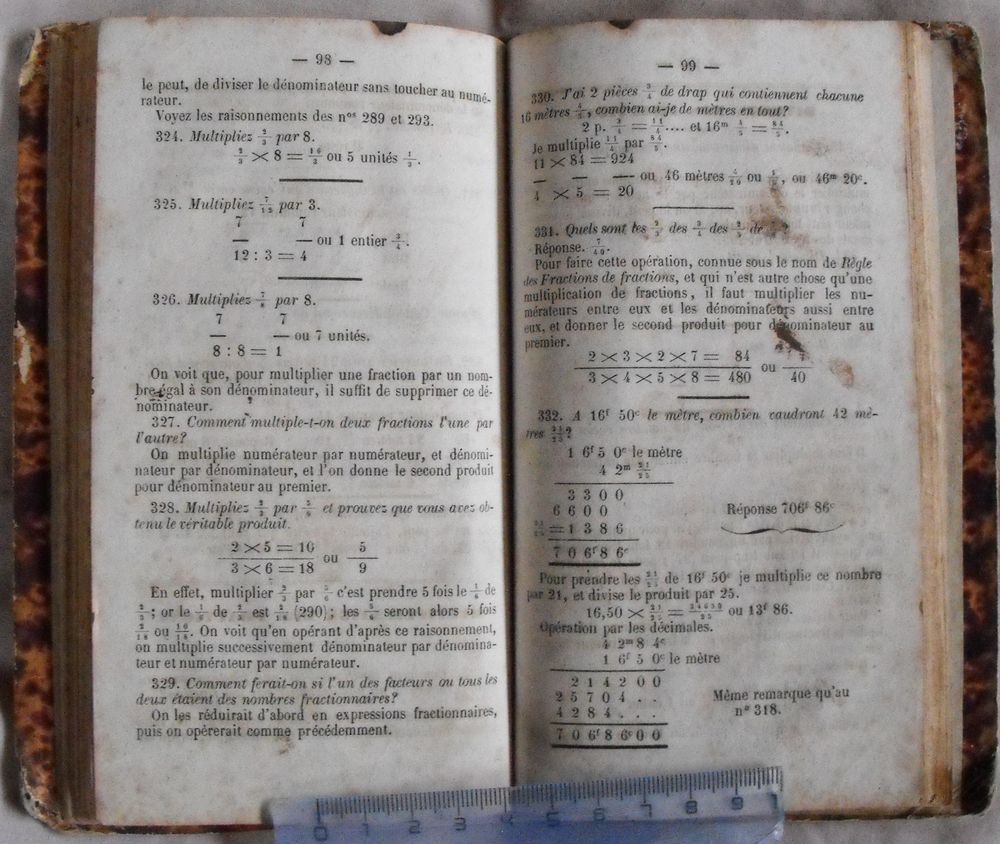 — 98 —
le peut, de diviser le dénominateur sans toucher au numé-
rateur.
Voyez les raisonnements des nos 289 et 293.
324. Multipliez 2/3 par 8.
2/3 × 8 = 16/3 ou 5 unités 1/3.
325. Multipliez 7/12 par 3.
7 7
— — ou 1 entier 3/4.
12 : 3 = 4
326. Multipliez 7/8 par 8.
7 7
— — ou 7 unités.
8 : 8 = 1
On voit que, pour multiplier une fraction par un nom-
bre égal à son dénominateur, il suffit de supprimer ce dé-
nominateur.
327. Comment multiple-t-on deux fractions l'une par
l'autre?
On multiplie numérateur par numérateur, et dénomi-
nateur par dénominateur, et l'on donne le second produit
pour dénominateur au premier.
328. Multipliez 2/3 par 5/6 et prouvez que vous avez ob-
tenu le véritable produit.
2 × 5 = 10 5
ou
3 × 6 = 18 9
En effet, multiplier 2/3 par 5/6 c'est prendre 5 fois le 1/6 de
2/3 ; or le 1/6 de 2/3 est 2/18 (290) ; les 5/6 seront alors 5 fois
2/18 ou 10/18. On voit qu'en opérant d'après ce raisonnement,
on multiplie successivement dénominateur par dénomina-
teur et numérateur par numérateur.
329. Comment ferait-on si l'un des facteurs ou tous les
deux étaient des nombres fractionnaires?
On les réduirait d'abord en expressions fractionnaires,
puis on opèrerait comme précédemment.
— 99 —
330. J'ai 2 pièces 3/4 de drap qui contiennent chacune
16 mètres 4/5, combien ai-je de mètres en tout?
2 p. 3/4 = 11/4.... et 16m 4/5 = 84/5.
Je multiplie 11/4 par 84/5.
11 × 84 = 924
— — — ou 46 mètres 4/20 ou 1/5, ou 46m 20c.
4 × 5 = 20
331. Quels sont les 2/3 des 3/4 des 2/5 de 7/8?
Réponse. 7/40.
Pour faire cette opération, connue sous le nom de Règle
des Fractions de fractions, et qui n'est autre chose qu'une
multiplication de fractions, il faut multiplier les nu-
mérateurs entre eux et les dénominateurs aussi entre
eux, et donner le second produit pour dénominateur au
premier.
2 × 3 × 2 × 7 = 84 7
ou
3 × 4 × 5 × 8 = 480 40
332. A 16f 50c le mètre, combien vaudront 42 mè-
tres 21/25?
1 6f 5 0c le mètre
4 2m 21/25
3 3 0 0
6 6 0 0 Réponse 706f 86c
21/25 = 1 3 8 6
7 0 6f 8 6c
Pour prendre les 21/25 de 16f 50c je multiplie ce nombre
par 21, et divise le produit par 25.
16,50 × 21/25 = 34650/25 ou 13f 86.
Opération par les décimales.
4 2m 8 4c
1 6f 5 0c le mètre
2 1 4 2 0 0
2 5 7 0 4 . . Même remarque qu'au
4 2 8 4 . . . n° 318.
7 0 6f 8 6c 0 0
0 1 2 3 4 5 6 7 8 9 1